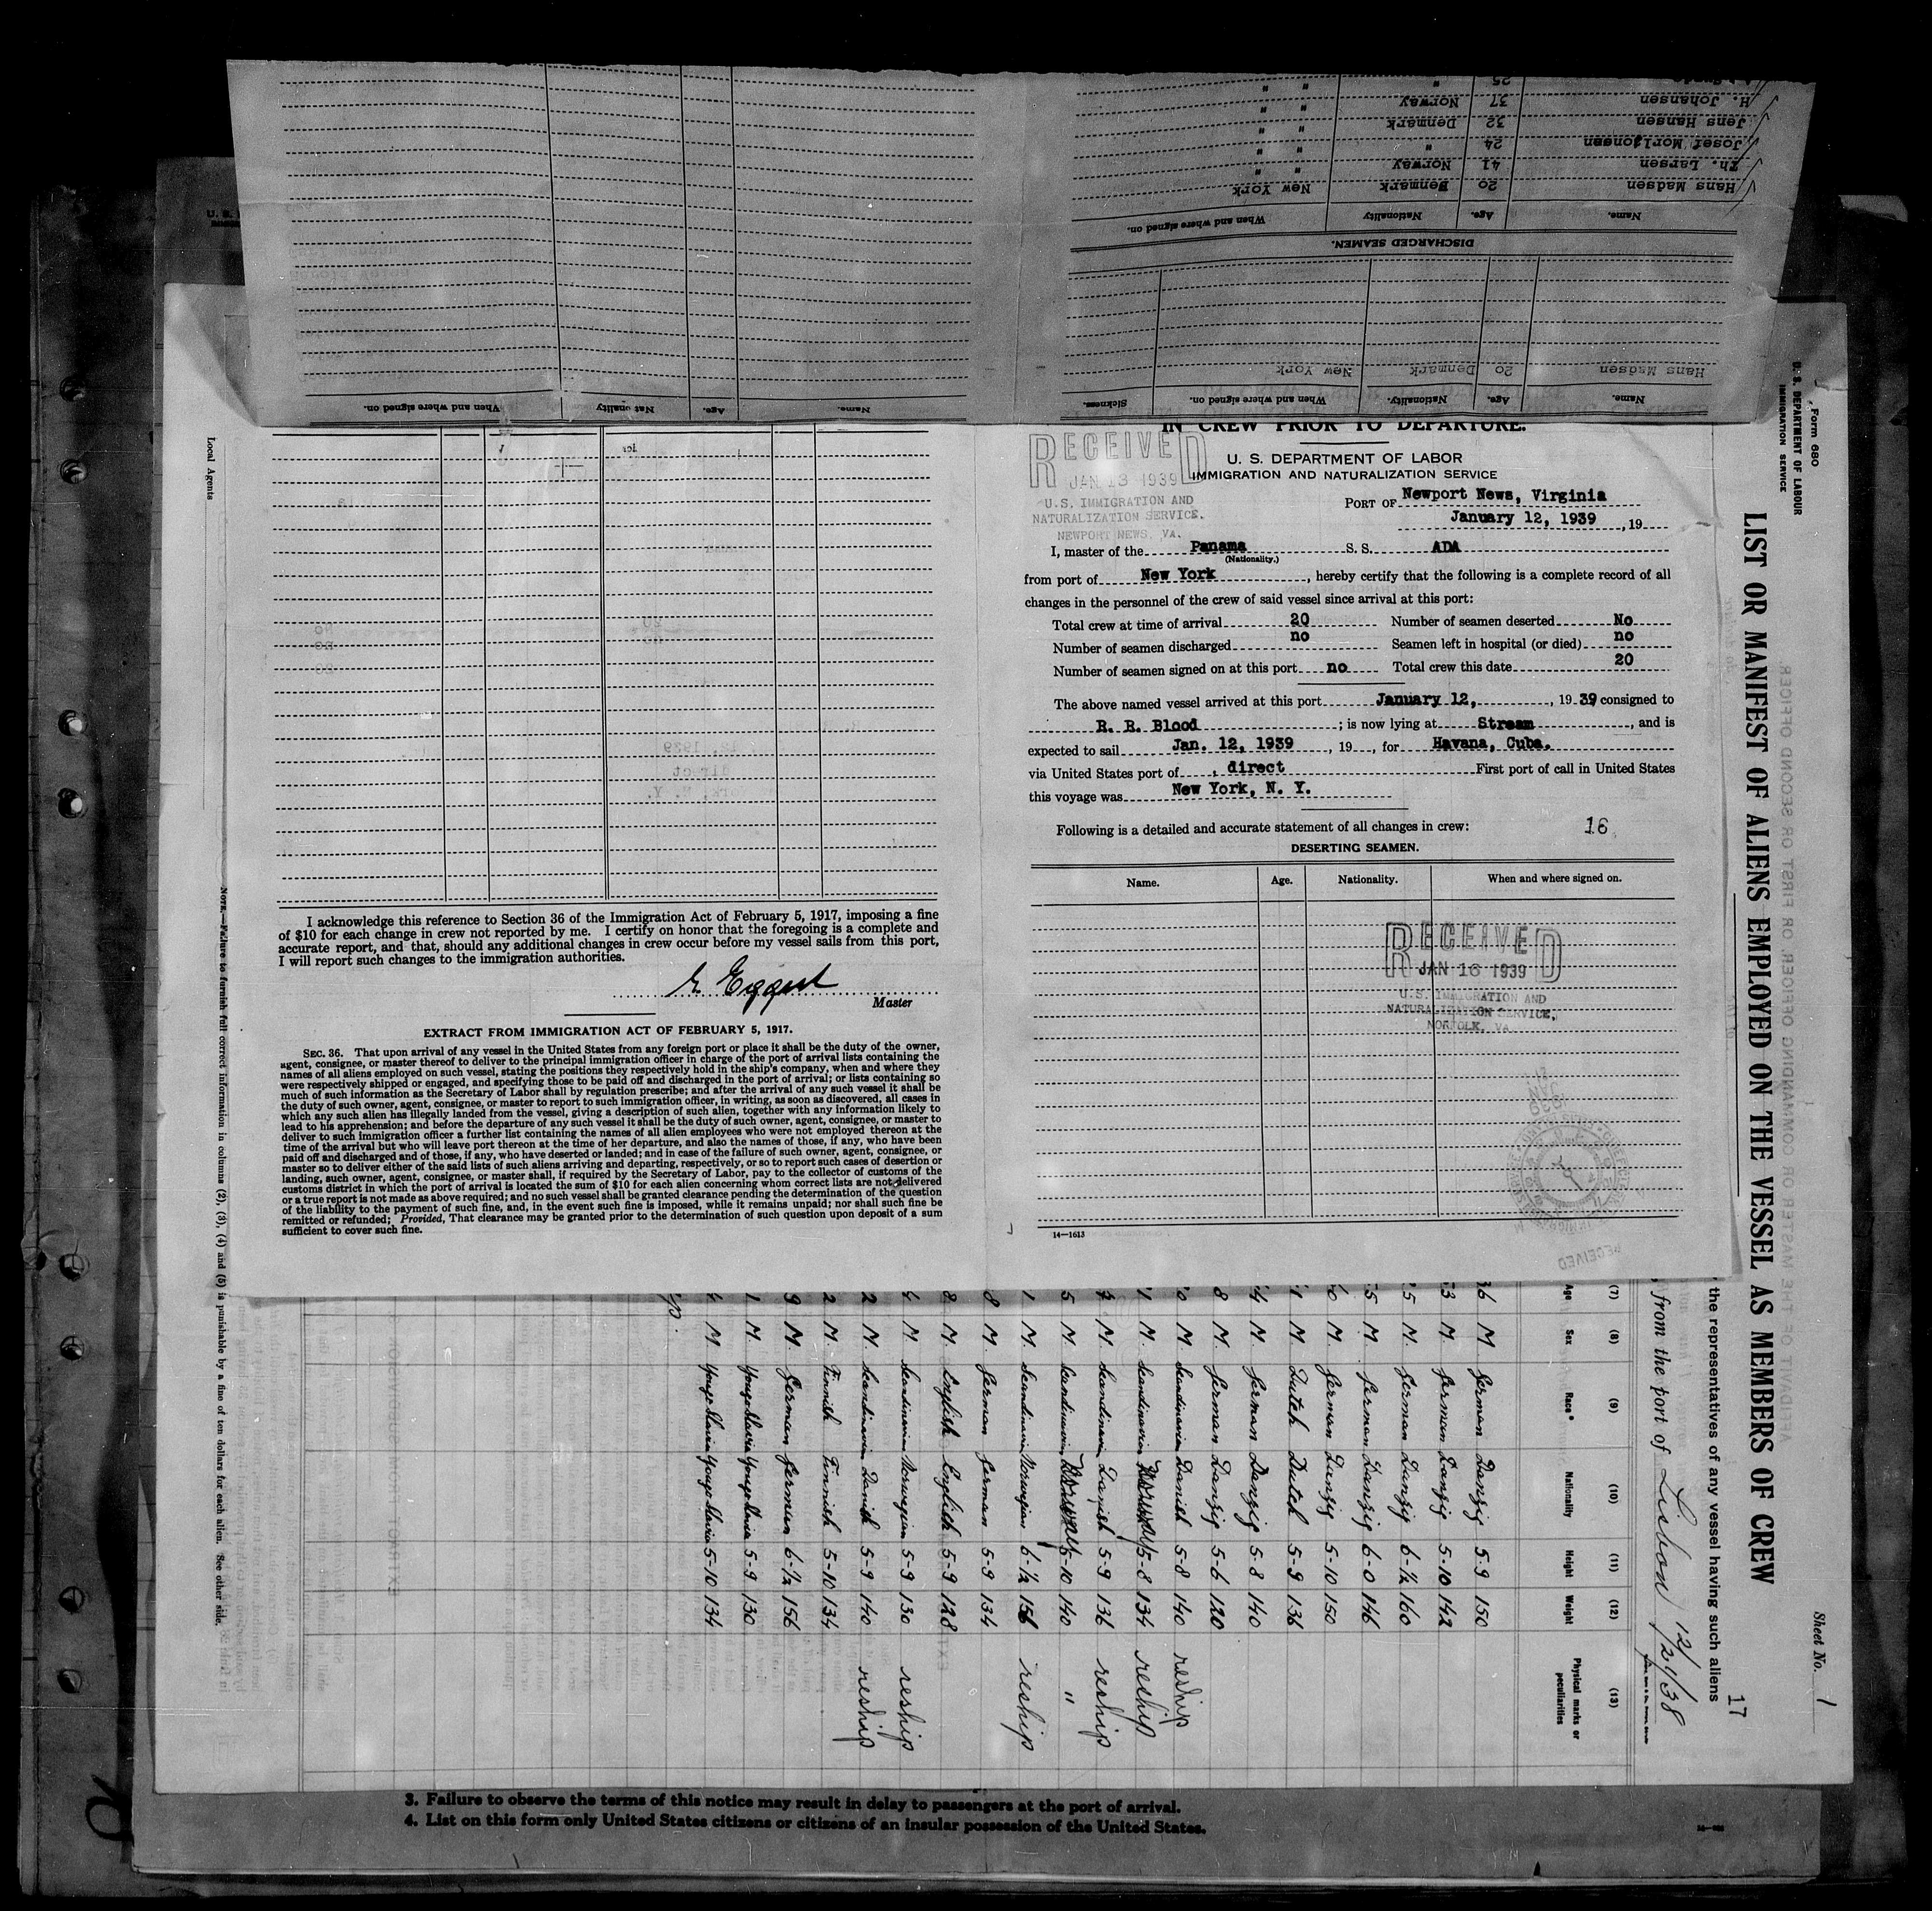 Hans Madsen 20 Denmark New York
Th. Larsen 41 Norway " "
Josef Morlionsen 24 " " "
Jens Hansen 32 Denmark " "
H. Johansen 37 Norway " "
25 " " "
Name. Age. Nationality When and where signed on.
DISCHARGED SEAMEN.
Hans Madsen 20 Denmark New York
Name. Age. Nationality. When and where signed on. Sickness.
Name. Age. Nationality When and where signed on.
IN CREW PRIOR TO DEPARTURE.
RECEIVED
JAN 13 1939
U.S. IMMIGRATION AND
NATURALIZATION SERVICE.
NEWPORT NEWS, VA.
U. S. DEPARTMENT OF LABOR
IMMIGRATION AND NATURALIZATION SERVICE
PORT OF Newport News, Virginia
January 12, 1939, 19
I, master of the Panama S. S. ADA
(Nationality.)
from port of New York, hereby certify that the following is a complete record of all
changes in the personnel of the crew of said vessel since arrival at this port:
Total crew at time of arrival 20 Number of seamen deserted No
Number of seamen discharged no Seamen left in hospital (or died) no
Number of seamen signed on at this port no Total crew this date 20
The above named vessel arrived at this port January 12, , 1939 consigned to
R. R. Blood ; is now lying at Stream, and is
expected to sail Jan. 12, 1939, 19 , for Havana, Cuba.
via United States port of , direct First port of call in United States
this voyage was New York, N. Y.
Following is a detailed and accurate statement of all changes in crew: 16
DESERTING SEAMEN.
Name. Age. Nationality. When and where signed on.
RECEIVED
JAN 16 1939
U.S. IMMIGRATION AND
NATURALIZATION SERVICE,
NORFOLK, VA.
14—1613
I acknowledge this reference to Section 36 of the Immigration Act of February 5, 1917, imposing a fine
of $10 for each change in crew not reported by me. I certify on honor that the foregoing is a complete and
accurate report, and that, should any additional changes in crew occur before my vessel sails from this port,
I will report such changes to the immigration authorities.
E Eggert
Master
EXTRACT FROM IMMIGRATION ACT OF FEBRUARY 5, 1917.
SEC. 36. That upon arrival of any vessel in the United States from any foreign port or place it shall be the duty of the owner,
agent, consignee, or master thereof to deliver to the principal immigration officer in charge of the port of arrival lists containing the
names of all aliens employed on such vessel, stating the positions they respectively hold in the ship's company, when and where they
were respectively shipped or engaged, and specifying those to be paid off and discharged in the port of arrival; or lists containing so
much of such information as the Secretary of Labor shall by regulation prescribe; and after the arrival of any such vessel it shall be
the duty of such owner, agent, consignee, or master to report to such immigration officer, in writing, as soon as discovered, all cases in
which any such alien has illegally landed from the vessel, giving a description of such alien, together with any information likely to
lead to his apprehension; and before the departure of any such vessel it shall be the duty of such owner, agent, consignee, or master to
deliver to such immigration officer a further list containing the names of all alien employees who were not employed thereon at the
time of the arrival but who will leave port thereon at the time of her departure, and also the names of those, if any, who have been
paid off and discharged and of those, if any, who have deserted or landed; and in case of the failure of such owner, agent, consignee, or
master so to deliver either of the said lists of such aliens arriving and departing, respectively, or so to report such cases of desertion or
landing, such owner, agent, consignee, or master shall, if required by the Secretary of Labor, pay to the collector of customs of the
customs district in which the port of arrival is located the sum of $10 for each alien concerning whom correct lists are not delivered
or a true report is not made as above required; and no such vessel shall be granted clearance pending the determination of the question
of the liability to the payment of such fine, and, in the event such fine is imposed, while it remains unpaid; nor shall such fine be
remitted or refunded; Provided, That clearance may be granted prior to the determination of such question upon deposit of a sum
sufficient to cover such fine.
Form 680
U. S. DEPARTMENT OF LABOUR
IMMIGRATION SERVICE
Sheet No. 1
LIST OR MANIFEST OF ALIENS EMPLOYED ON THE VESSEL AS MEMBERS OF CREW
17
, the representatives of any vessel having such aliens
, from the port of Lisbon 12/21/38
(7) (8) (9) (10) (11) (12) (13)
Age Sex Race* Nationality Height Weight Physical marks or peculiarities
36 M German Danzig 5-9 150
33 M German Danzig 5-10 142
5 M. German Danzig 6-½ 160
5 M. German Danzig 6-0 146
0 M. German Danzig 5-10 150
1 M Dutch Dutch 5-9 136
4 M. German Danzig 5-8 140
8 M. German Danzig 5-6 120
0 M. Scandinavia Danish 5-8 140 reship
1 M. Scandinavia Norway 5-8 134 reship
M. Scandinavia Danish 5-9 136 reship
5 M. Scandinavia Norway 5-10 140 "
1 M. Scandinavia Norwegian 6-½ 156 reship
8 M. German German 5-9 134
8 M. English English 5-9 128
4 M. Scandinavia Norwegian 5-9 130 reship
2 M. Scandinavia Danish 5-9 140 reship
2 M. Finnish Finnish 5-10 134
9 M. German German 6-½ 156
1 M. Yougo Slavia Yougo Slavia 5-9 130
4 M Yougo Slavia Yougo Slavia 5-10 134
Local Agents
NOTE.—Failure to furnish full correct information in columns (2), (3), (4) and (5) is punishable by a fine of ten dollars for each alien. See other side.
3. Failure to observe the terms of this notice may result in delay to passengers at the port of arrival.
4. List on this form only United States citizens or citizens of an insular possession of the United States.